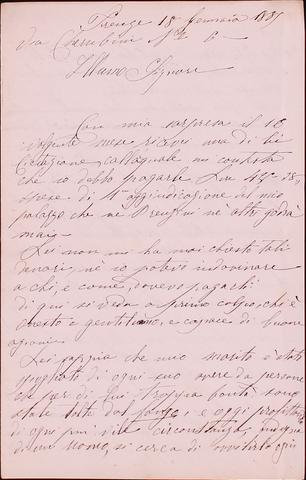 Firenze 18 Gennaio 18
Via Cherubini N° 6
Illumo Signore
Con mia sorpresa il 10
mese ricevo una di lei
citazione, nella quale mi
che io debbo pagarle Lire
spese di 1ª aggiudicazione del mio
palazzo che nè nè altri godrà
mai
Lei non mi ha mai chiesto tali
denari, nè io potevo indovinare
a chi, e come, dovevo pagarli
di qui si vede a primo colpo, chi è
onesto e gentiluomo, e capace di buone
azioni
Lei sappia che mio marito è stato
spogliato di ogni suo avere da persone
che per di lui troppa bontà sono
state tolte dal fango, e oggi
di ogni più vile circostanza, indegna
di un Uomo, si cerca di ogni